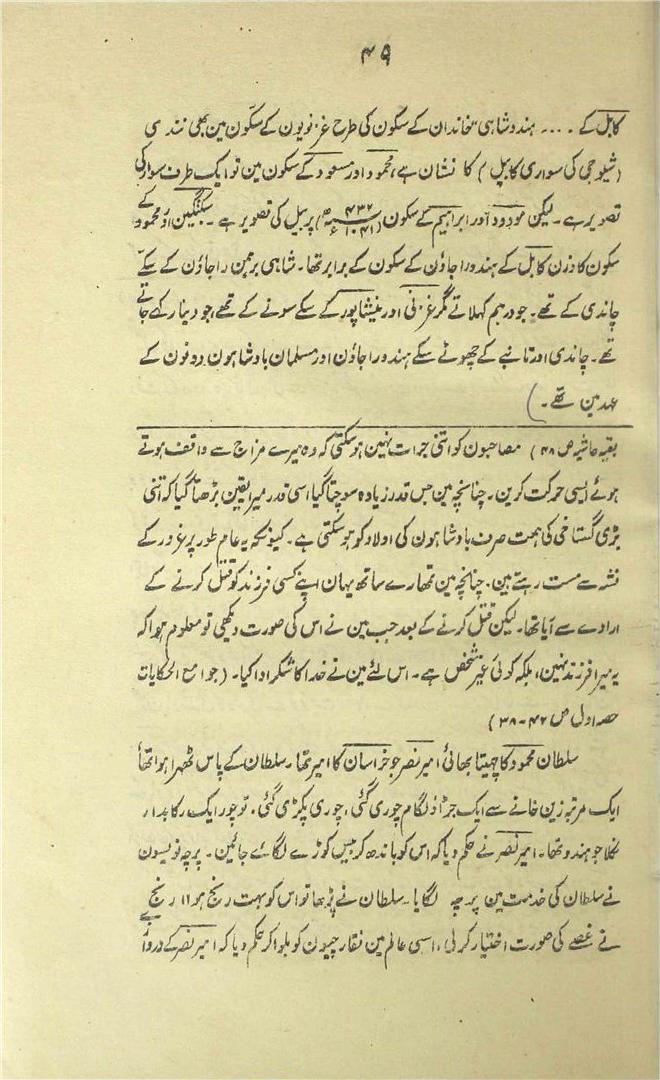 ۴۹
کابل کے .... ہندو شاہی خاندان کے سکّون کی طرح غزنویون کے سکّون مین بھی نندی
(شیوجی کی سواری کا بیل) کا نشان ہے، محمود اور مسعود کے سکون مین تو ایک طرف سوار کی
تصویر ہے۔ لیکن مودود اور ابراہیم کے سکون (۴۳۲ھ ۱۰۴۱ء) پر بیل کی تصویر ہے۔ سبکتگین اور محمود کے
سکون کا وزن کابل کے ہندو راجاؤن کے سکون کے برابر تھا۔ شاہی برہمن راجاؤن کے سکے
چاندی کے تھے۔ جو درہم کہلاتے مگر غزنی اور نیشاپور کے سکے سونے کے تھے، جو دینار کہے جاتے
تھے۔ چاندی اور تانبے کے چھوٹے سکے ہندو راجاؤن اور مسلمان بادشاہون دونون کے
عہد مین تھے۔)
بقیہ حاشیہ ص ۴۸) مصاحبون کو اتنی جرات نہین ہوسکتی کہ وہ میرے مزاج سے واقف ہوتے
ہوئے ایسی حرکت کرین۔ چنانچہ مین جس قدر زیادہ سوچتا گیا اسی قدر میرا یقین بڑھتا گیا کہ اتنی
بڑی گستاخی کی ہمت صرف بادشاہون کی اولاد کو ہوسکتی ہے۔ کیونکہ یہ عام طور پر غرور کے
نشہ سے مست رہتے ہین۔ چنانچہ مین تمھارے ساتھ یہان اپنے کسی فرزند کو قتل کرنے کے
ارادے سے آیا تھا۔ لیکن قتل کرنے کے بعد جب مین نے اس کی صورت دیکھی تو معلوم ہوا کہ
یہ میرا فرزند نہین، بلکہ کوئی غیر شخص ہے۔ اس لئے مین نے خدا کا شکر ادا کیا۔ (جوامع الحکایات
حصہ اول ص ۴۲-۳۸)
سلطان محمود کا چہیتا بھائی امیر نصر جو خراسان کا امیر تھا۔ سلطان کے پاس ٹھہرا ہوا تھا
ایک مرتبہ زین خانے سے ایک جڑاؤ لگام چوری گئی، چوری پکڑی گئی۔ تو چور ایک رکابدار
نکلا جو ہندو تھا۔ امیر نصر نے حکم دیا کہ اس کو باندھ کر بیس کوڑے لگائے جائین۔ پرچہ نویسون
نے سلطان کی خدمت مین پرچہ لگایا۔ سلطان نے پڑھا تو اس کو بہت رنج ہوا، رنج
نے غصے کی صورت اختیار کر لی، اسی عالم مین نقارچیون کو بلوا کر حکم دیا کہ امیر نصر کے دروازے